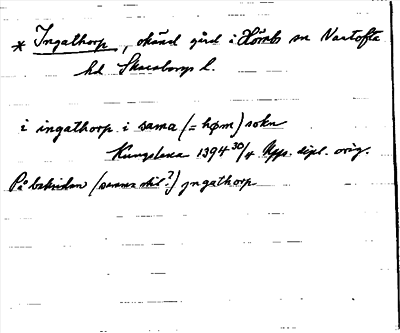 * Ingathorp, okänd gård i Hömb sn Vartofta
hd Skaraborgs l.
i ingathorp i sama (= høm) sokn
Kungslena 1394 30/4 Upps. dipl. orig.
På baksidan (samma stil?) yngathorp